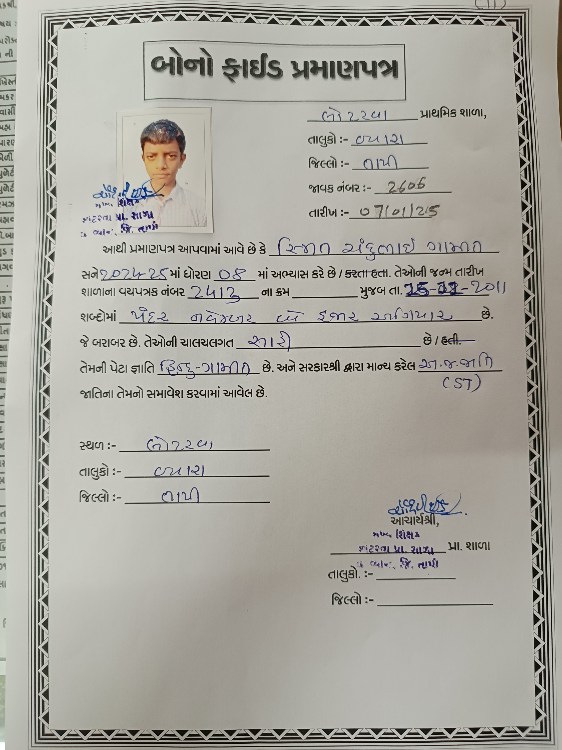 બોનો ફાઈડ પ્રમાણપત્ર
પ્રાથમિક શાળા,
તાલુકો :- વ્યારા
જિલ્લો :- તાપી
જાવક નંબર :- 2606
તારીખ :- 07/01/25
મુખ્ય શિક્ષક
પ્રા. શાળા
જિ. તાપી
આથી પ્રમાણપત્ર આપવામાં આવે છે કે સ્મિત ચંદુભાઈ ગામીત
સને 2024-25 માં ધોરણ 08 માં અભ્યાસ કરે છે / કરતા હતા. તેઓની જન્મ તારીખ
શાળાના વયપત્રક નંબર 2413 ના ક્રમ મુજબ તા. -2011
શબ્દોમાં પંદર નવેમ્બર બે હજાર અગિયાર છે.
જે બરાબર છે. તેઓની ચાલચલગત સારી છે / હતી.
તેમની પેટા જ્ઞાતિ હિન્દુ-ગામીત છે. અને સરકારશ્રી દ્વારા માન્ય કરેલ અ.જ.જાતિ
(ST)
જાતિના તેમનો સમાવેશ કરવામાં આવેલ છે.
સ્થળ :-
તાલુકો :- વ્યારા
જિલ્લો :- તાપી
આચાર્યશ્રી,
મુખ્ય શિક્ષક
પ્રા. શાળા પ્રા. શાળા
જિ. તાપી
તાલુકો. :-
જિલ્લો :-